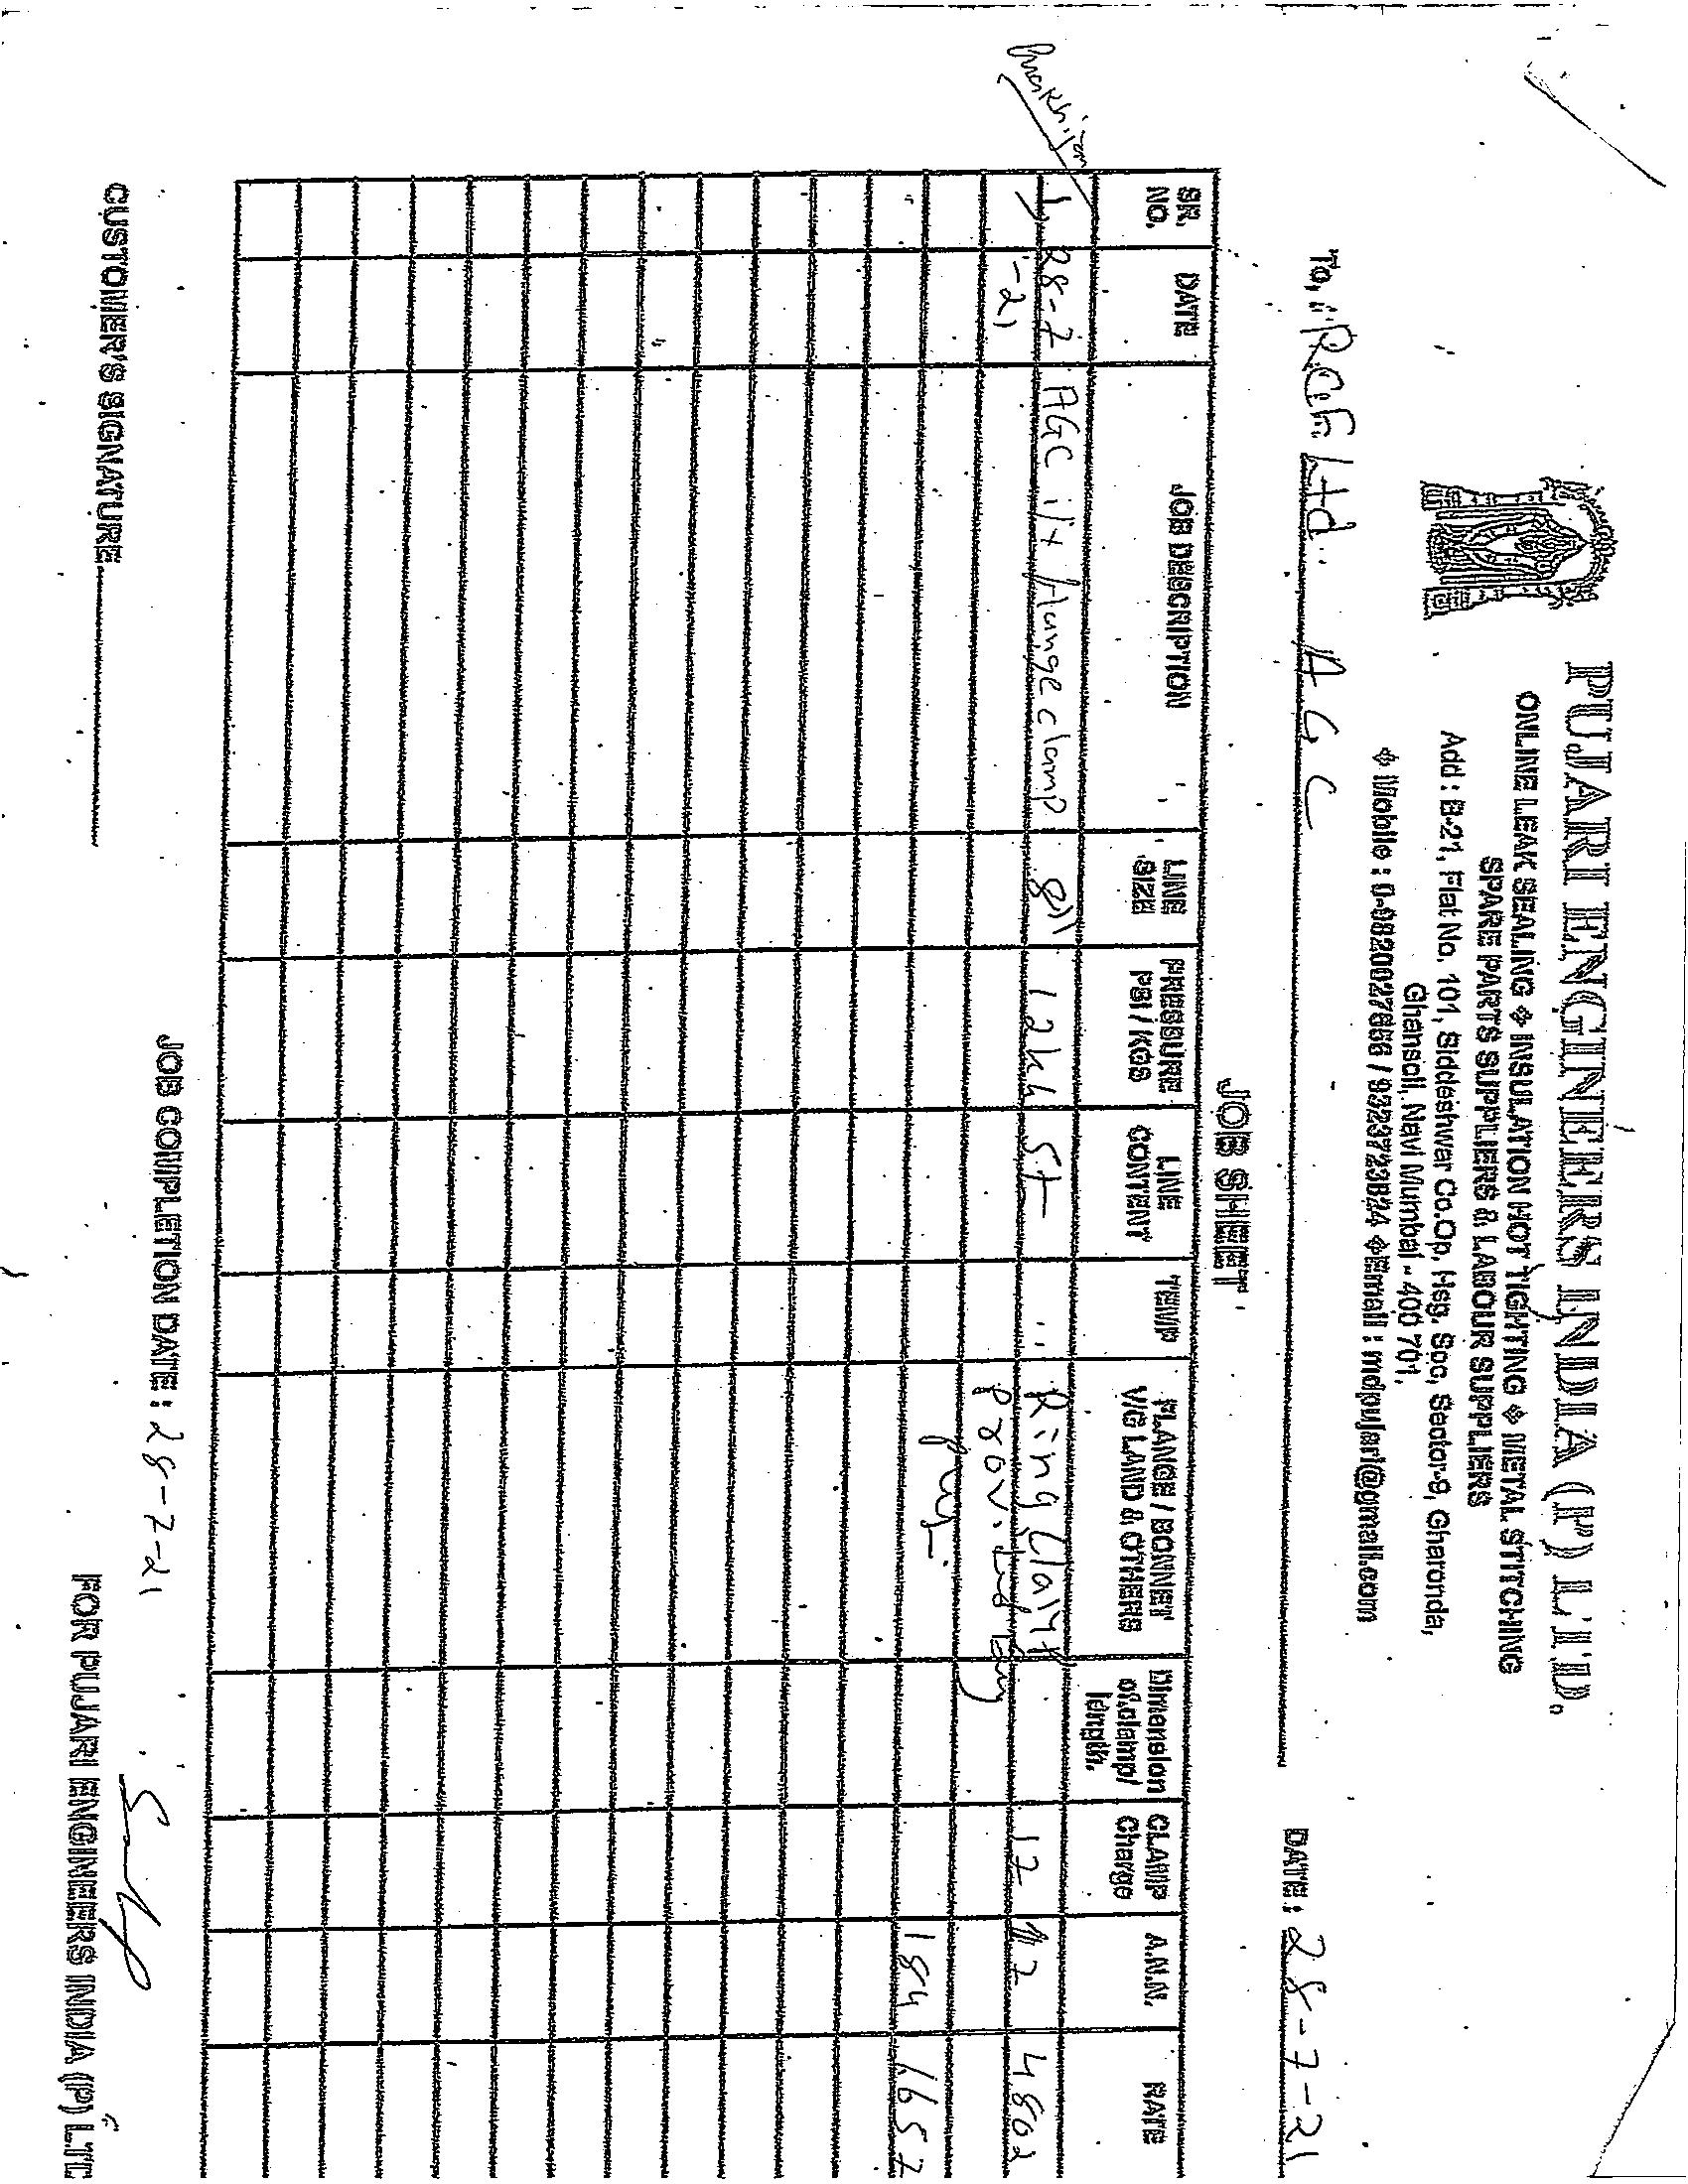 PUJARI ENGINEERS INDIA (P) LTD.
ONLINE LEAK SEALING ❖ INSULATION HOT TIGHTING ❖ METAL STITCHING
SPARE PARTS SUPPLIERS & LABOUR SUPPLIERS
Add : B-21, Flat No. 101, Siddeshwar Co.Op. Hsg. Soc, Sector-9, Gharonda,
Ghansoli, Navi Mumbai - 400 701.
❖ Mobile : 0-9820027666 / 9323723824 ❖Email : mdpujari@gmail.com
To, RCF Ltd. A G C DATE : 28-7-21
JOB SHEET
SR. NO. DATE JOB DESCRIPTION LINE SIZE PRESSURE PSI / KGS LINE CONTENT TEMP FLANGE / BONNET V/G LAND & OTHERS Dimension of.clamp/ length. CLAMP Charge A.N.N. RATE
1) 28-7 AGC flange clamp 8" 12kh St Ring Clamp 17 17 4802
-21
184 1657
JOB COMPLETION DATE : 28-7-21
CUSTOMER'S SIGNATURE
FOR PUJARI ENGINEERS INDIA (P) LTD